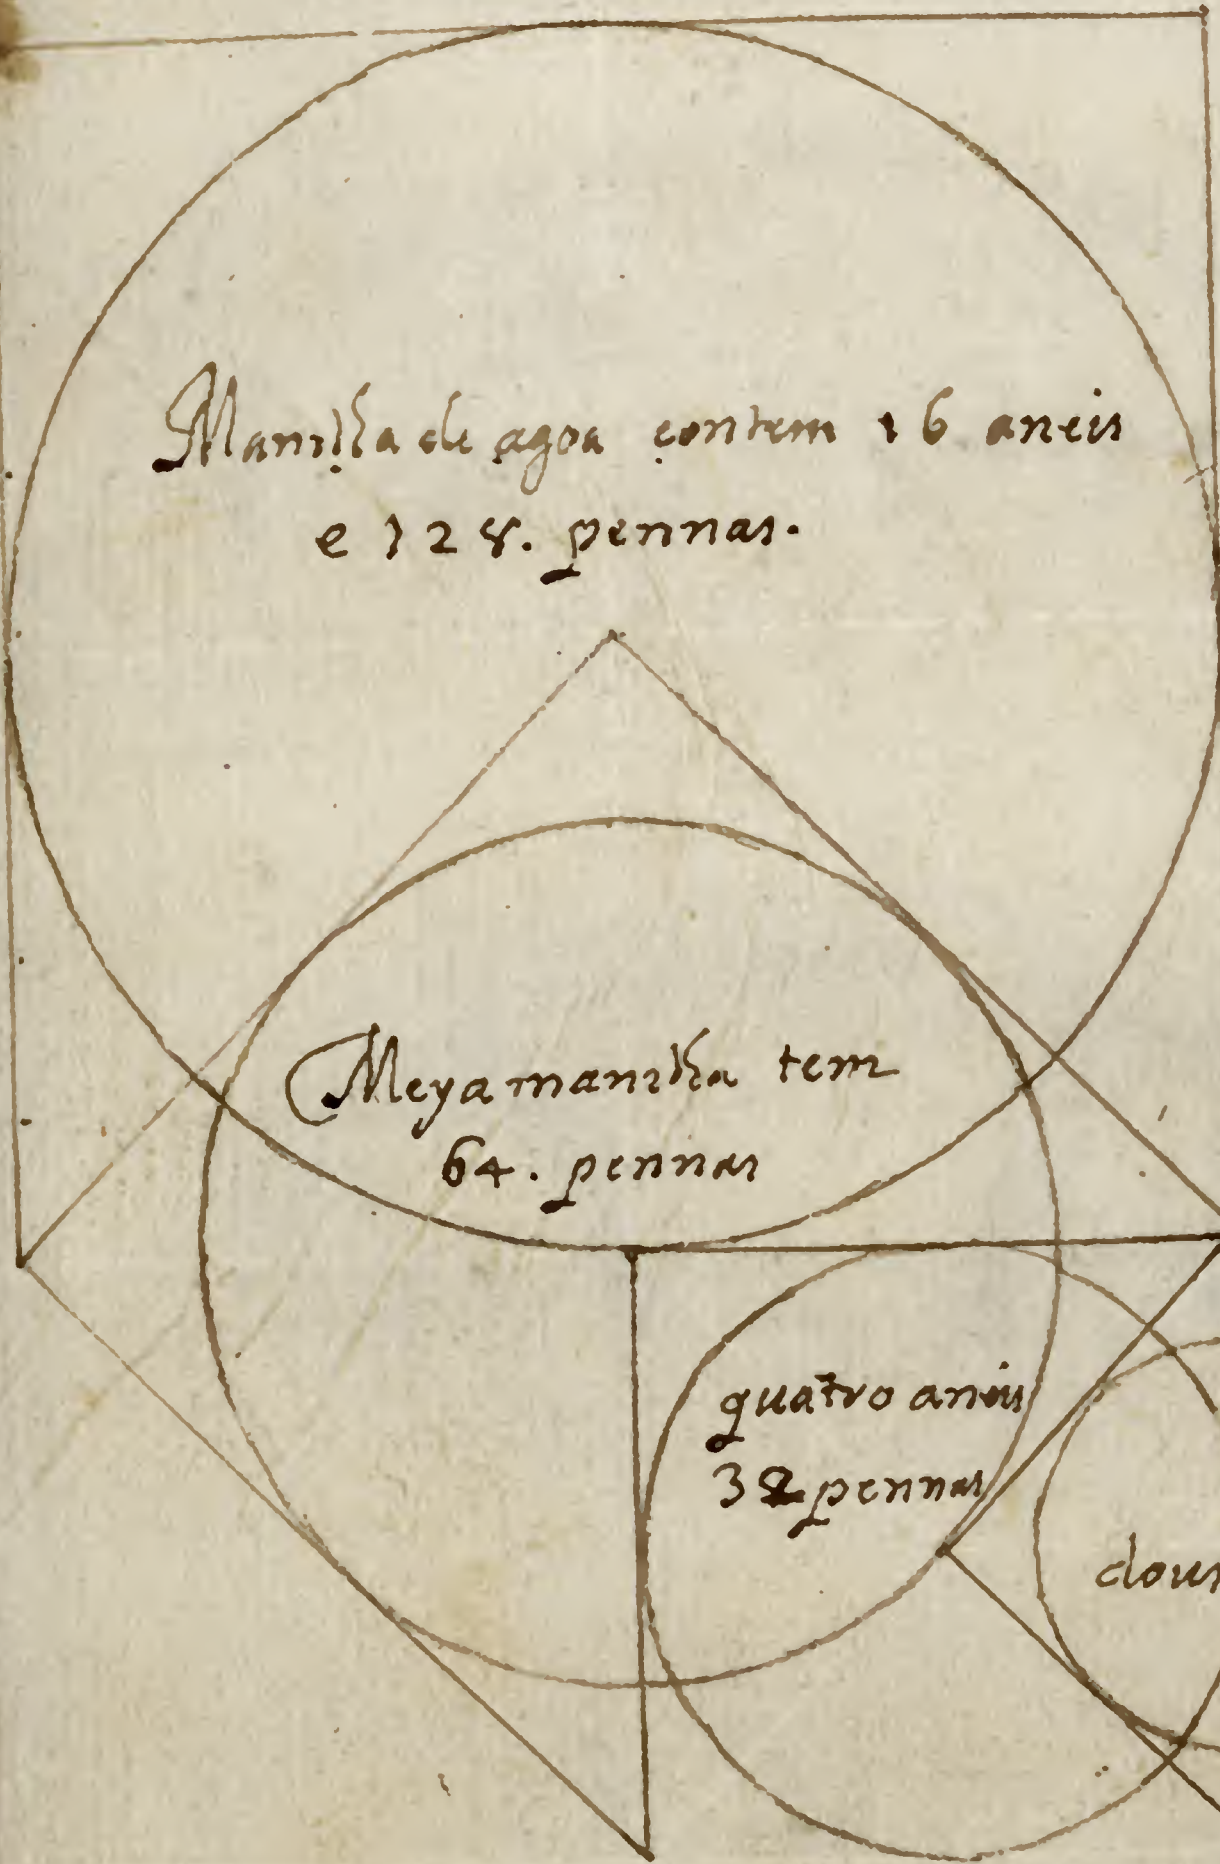 Manilha de agoa contem 16 aneis
e 128. pennas.
Meya manilha tem
64. pennas
quatro aneis
32 pennas
dous